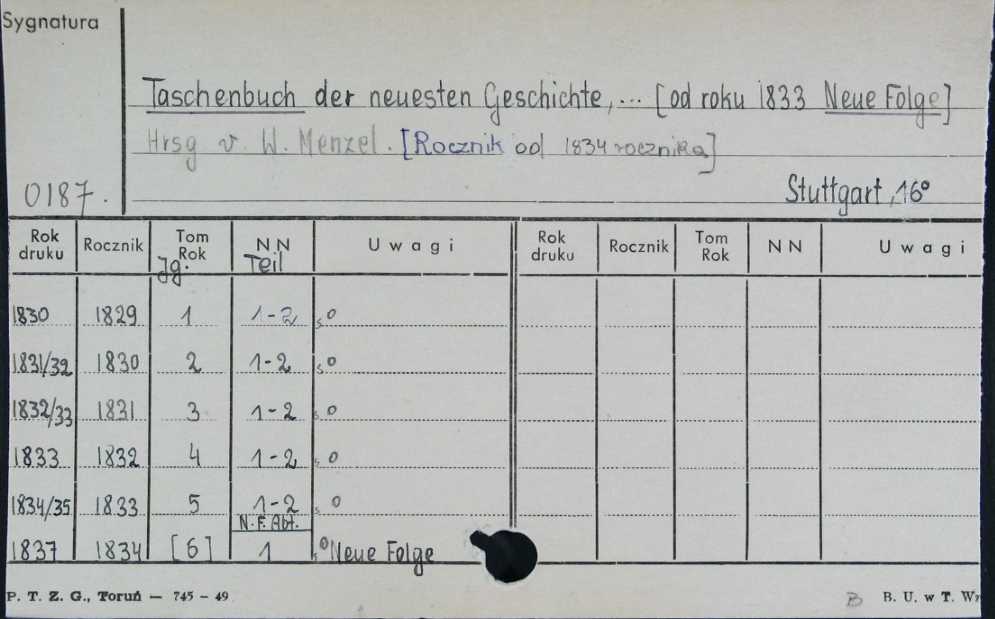 Sygnatura
Taschenbuch der neuesten Geschichte,... [od roku 1833 Neue Folge]
Hrsg v. W. Menzel. [Rocznik od 1834 rocznika]
0187. Stuttgart, 16°
Rok druku Rocznik Tom Rok Jg. NN Teil Uwagi Rok druku Rocznik Tom Rok NN Uwagi
1830 1829 1 1-2 °
1831/32 1830 2 1-2 °
1832/33 1831 3 1-2 °
1833 1832 4 1-2 °
1834/35 1833 5 1-2 °
N.F. Abt.
1837 1834 [6] 1 ° Neue Folge
P. T. Z. G., Toruń — 745 - 49 B B. U. w T.